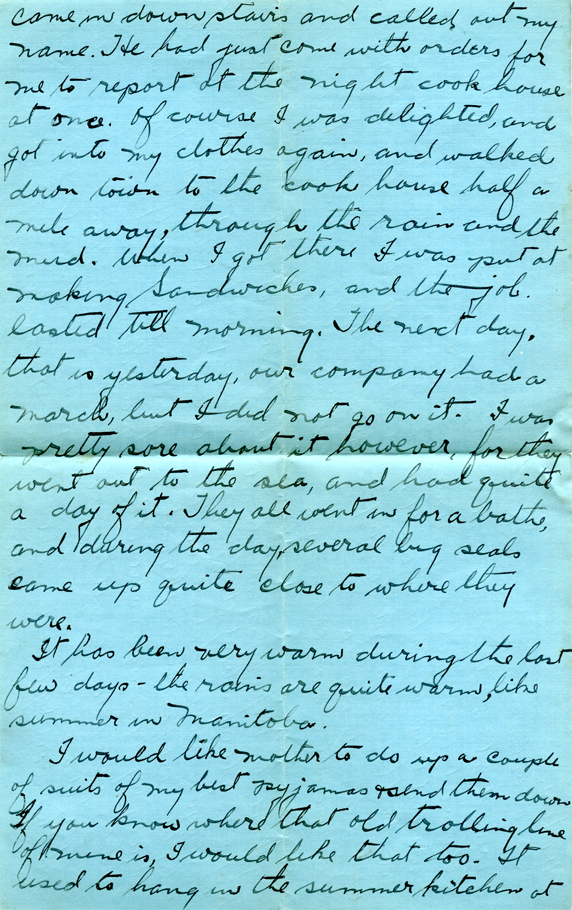 came in down stairs and called out my
name. He had just come with orders for
me to report at the night cook house
at once. Of course I was delighted, and
got into my clothes again, and walked
down town to the cook house half a
mile away, through the rain and the
mud. When I got there I was put at
making Sandwiches, and the job.
lasted till morning. The next day,
that is yesterday, our company had a
march, but I did not go on it. I was
pretty sore about it however, for they
went out to the sea, and had quite
a day of it. They all went in for a bathe,
and during the day, several big seals
came up quite close to where they
were.
It has been very warm during the last
few days - the rains are quite warm, like
summer in Manitoba.
I would like mother to do up a couple
of suits of my best pyjamas & send them down
If you know where that old trolling line
of mine is, I would like that too. It
used to hang in the summer kitchen at